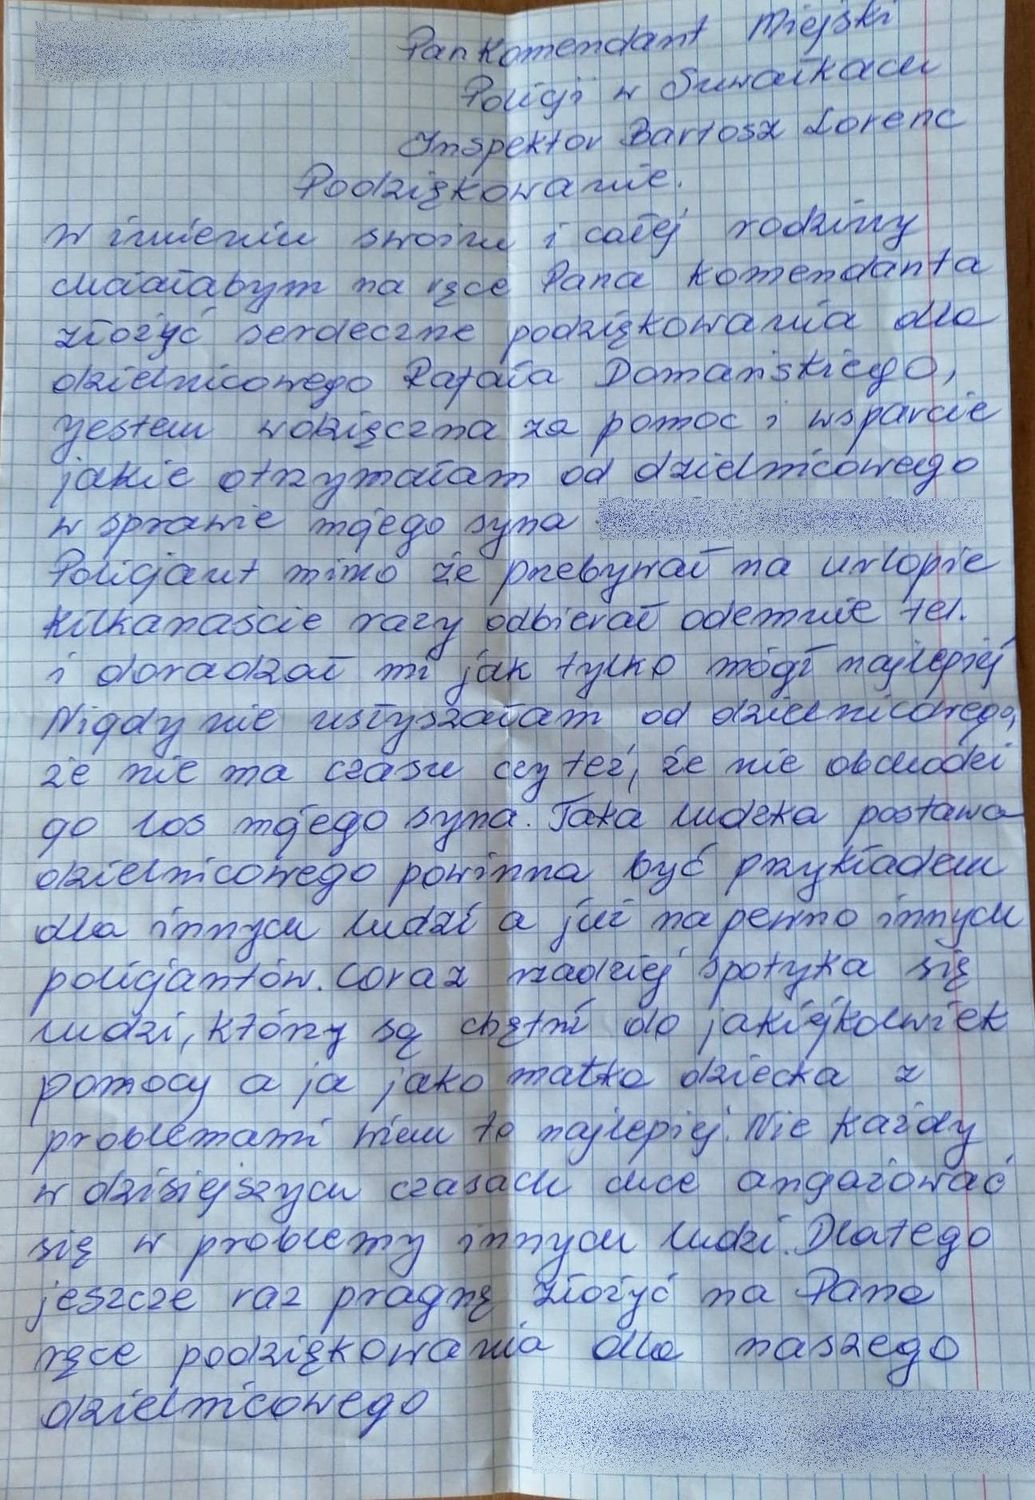 Pan Komendant Miejski
Policji w Suwałkach
Inspektor Bartosz Lorenc
Podziękowanie.
W imieniu swoim i całej rodziny
chciałabym na ręce Pana Komendanta
złożyć serdeczne podziękowania dla
dzielnicowego Rafała Domańskiego,
jestem wdzięczna za pomoc i wsparcie
jakie otrzymałam od dzielnicowego
w sprawie mojego syna
Policjant mimo że przebywał na urlopie
kilkanaście razy odbierał odemnie tel.
i doradzał mi jak tylko mógł najlepiej
Nigdy nie usłyszałam od dzielnicowego,
że nie ma czasu czy też, że nie obchodzi
go los mojego syna. Taka ludzka postawa
dzielnicowego powinna być przykładem
dla innych ludzi a już napewno innych
policjantów. Coraz rzadziej spotyka się
ludzi, którzy są chętni do jakiejkolwiek
pomocy a ja jako matka dziecka z
problemami wiem to najlepiej. Nie każdy
w dzisiejszych czasach chce angażować
się w problemy innych ludzi. Dlatego
jeszcze raz pragnę złożyć na Pana
ręce podziękowania dla naszego
dzielnicowego